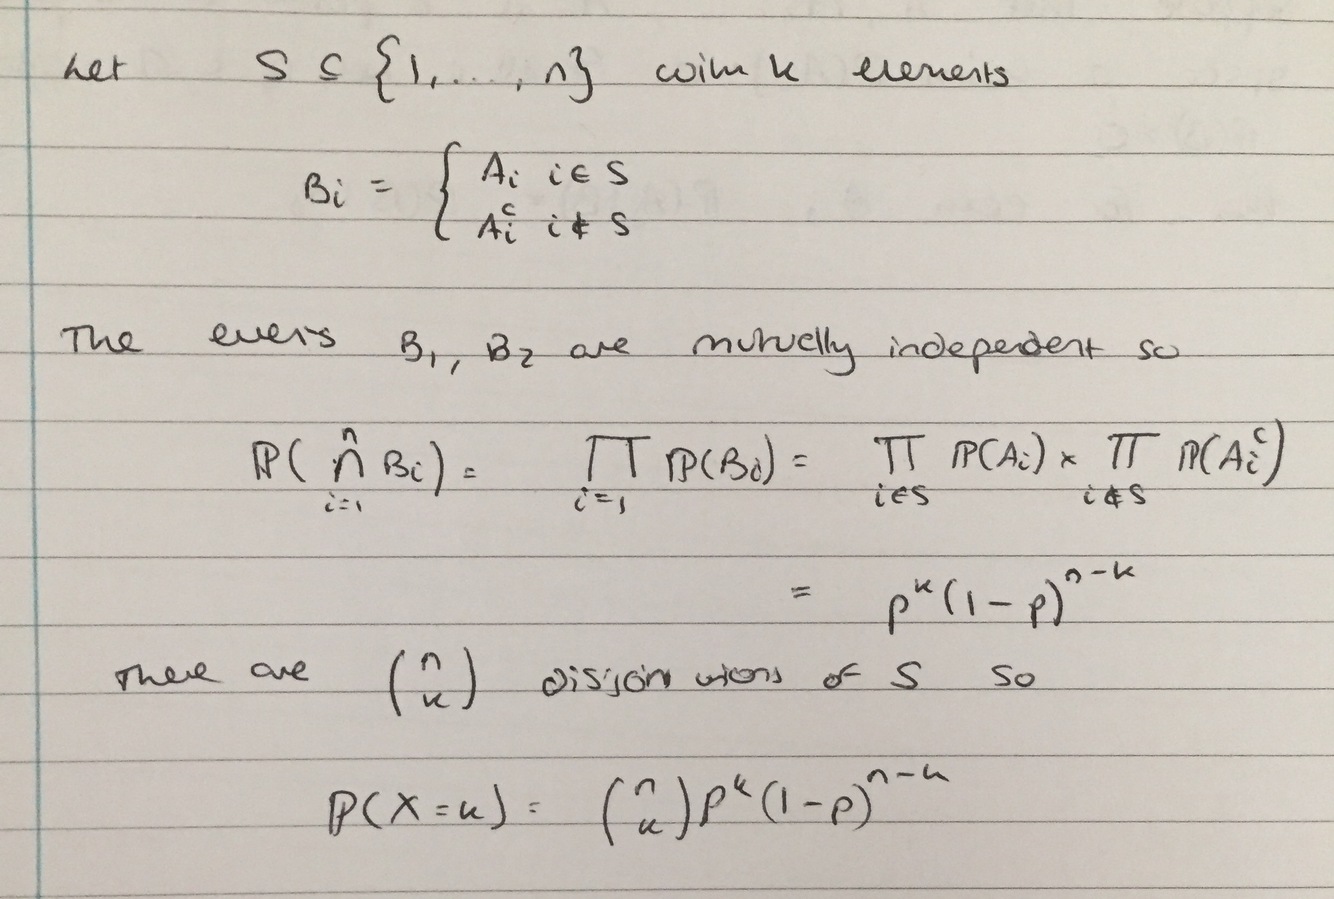 Let S ⊆ {1, ..., n} with k elements
Bi = { Ai i ∈ S
Ai^c i ∉ S
The events B1, B2 are mutually independent so
ℙ( ∩_{i=1}^{n} Bi ) = ∏_{i=1} ℙ(Bi) = ∏_{i∈S} ℙ(Ai) × ∏_{i∉S} ℙ(Ai^c)
= p^k (1 - p)^{n-k}
There are (n k) disjoint unions of S so
ℙ(X = k) = (n k) p^k (1 - p)^{n-k}